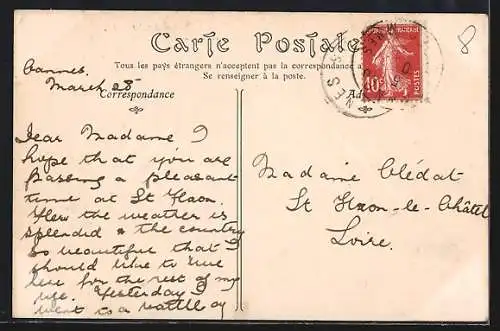 Carte Postale
Tous les pays étrangers n'acceptent pas la correspondance a
Se renseigner à la poste.
Cannes.
March 28
Correspondance
Ad
8
10
POSTES
Dear Madame I
hope that you are
passing a pleasant
time at St Haon.
Here the weather is
splendid & the country
so beautiful that I
should like to live
here for the rest of my
life. Yesterday I
went to a battle of
Madame Clédat
St Haon-le-Châtel
Loire.